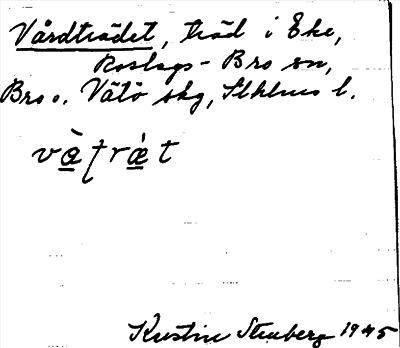 Vårdträdet, träd i Eke,
Roslags-Bro sn,
Bro o. Vätö skg, Sthlms l.
v&#97;̲̀ʈræ̲̀t
Kerstin Stenberg 1945